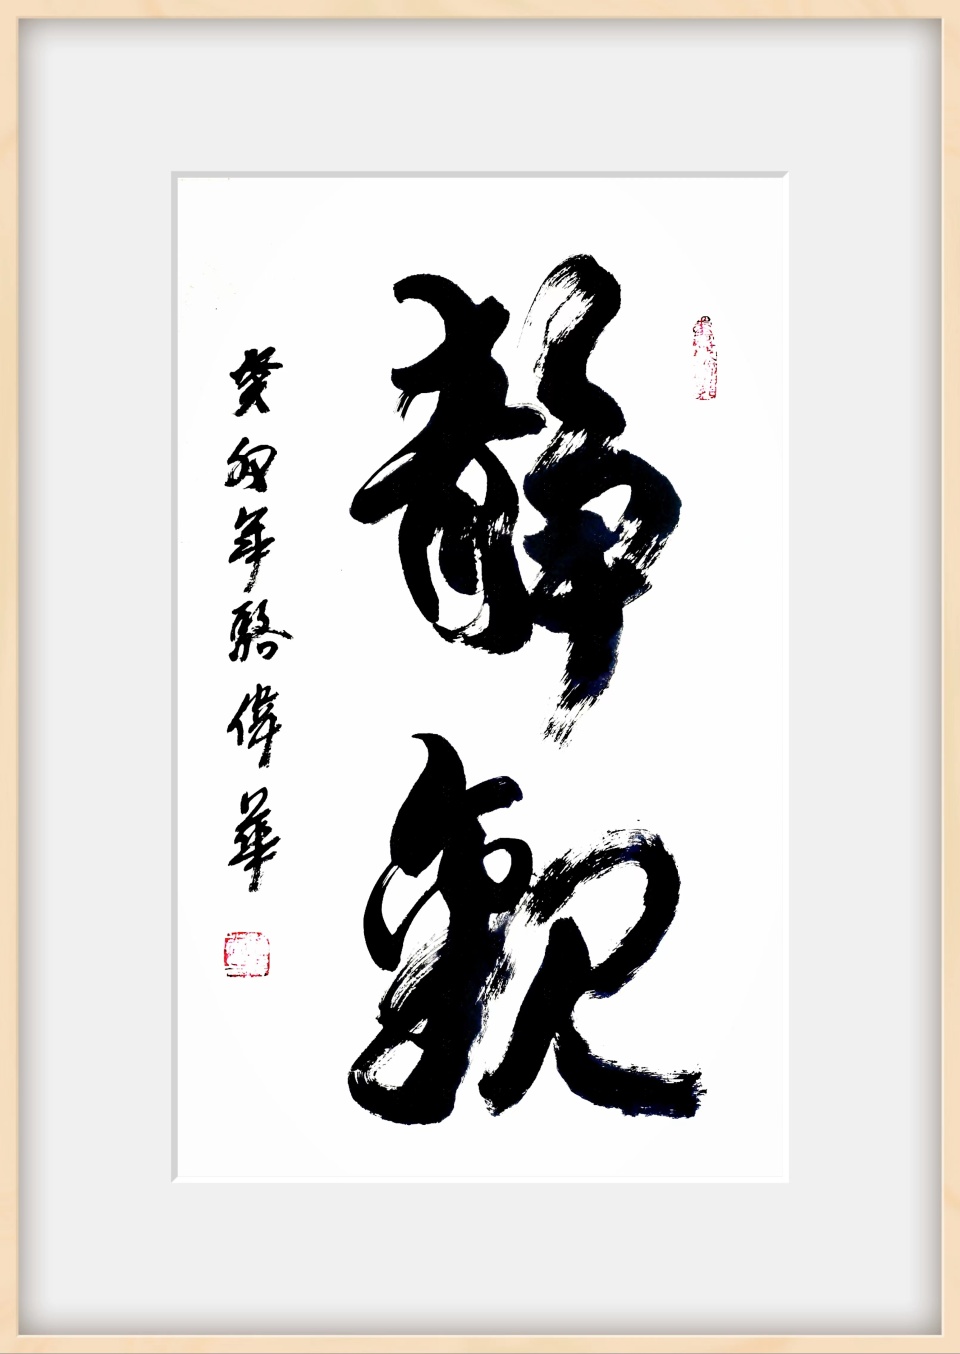 靜觀
癸卯年駱偉華